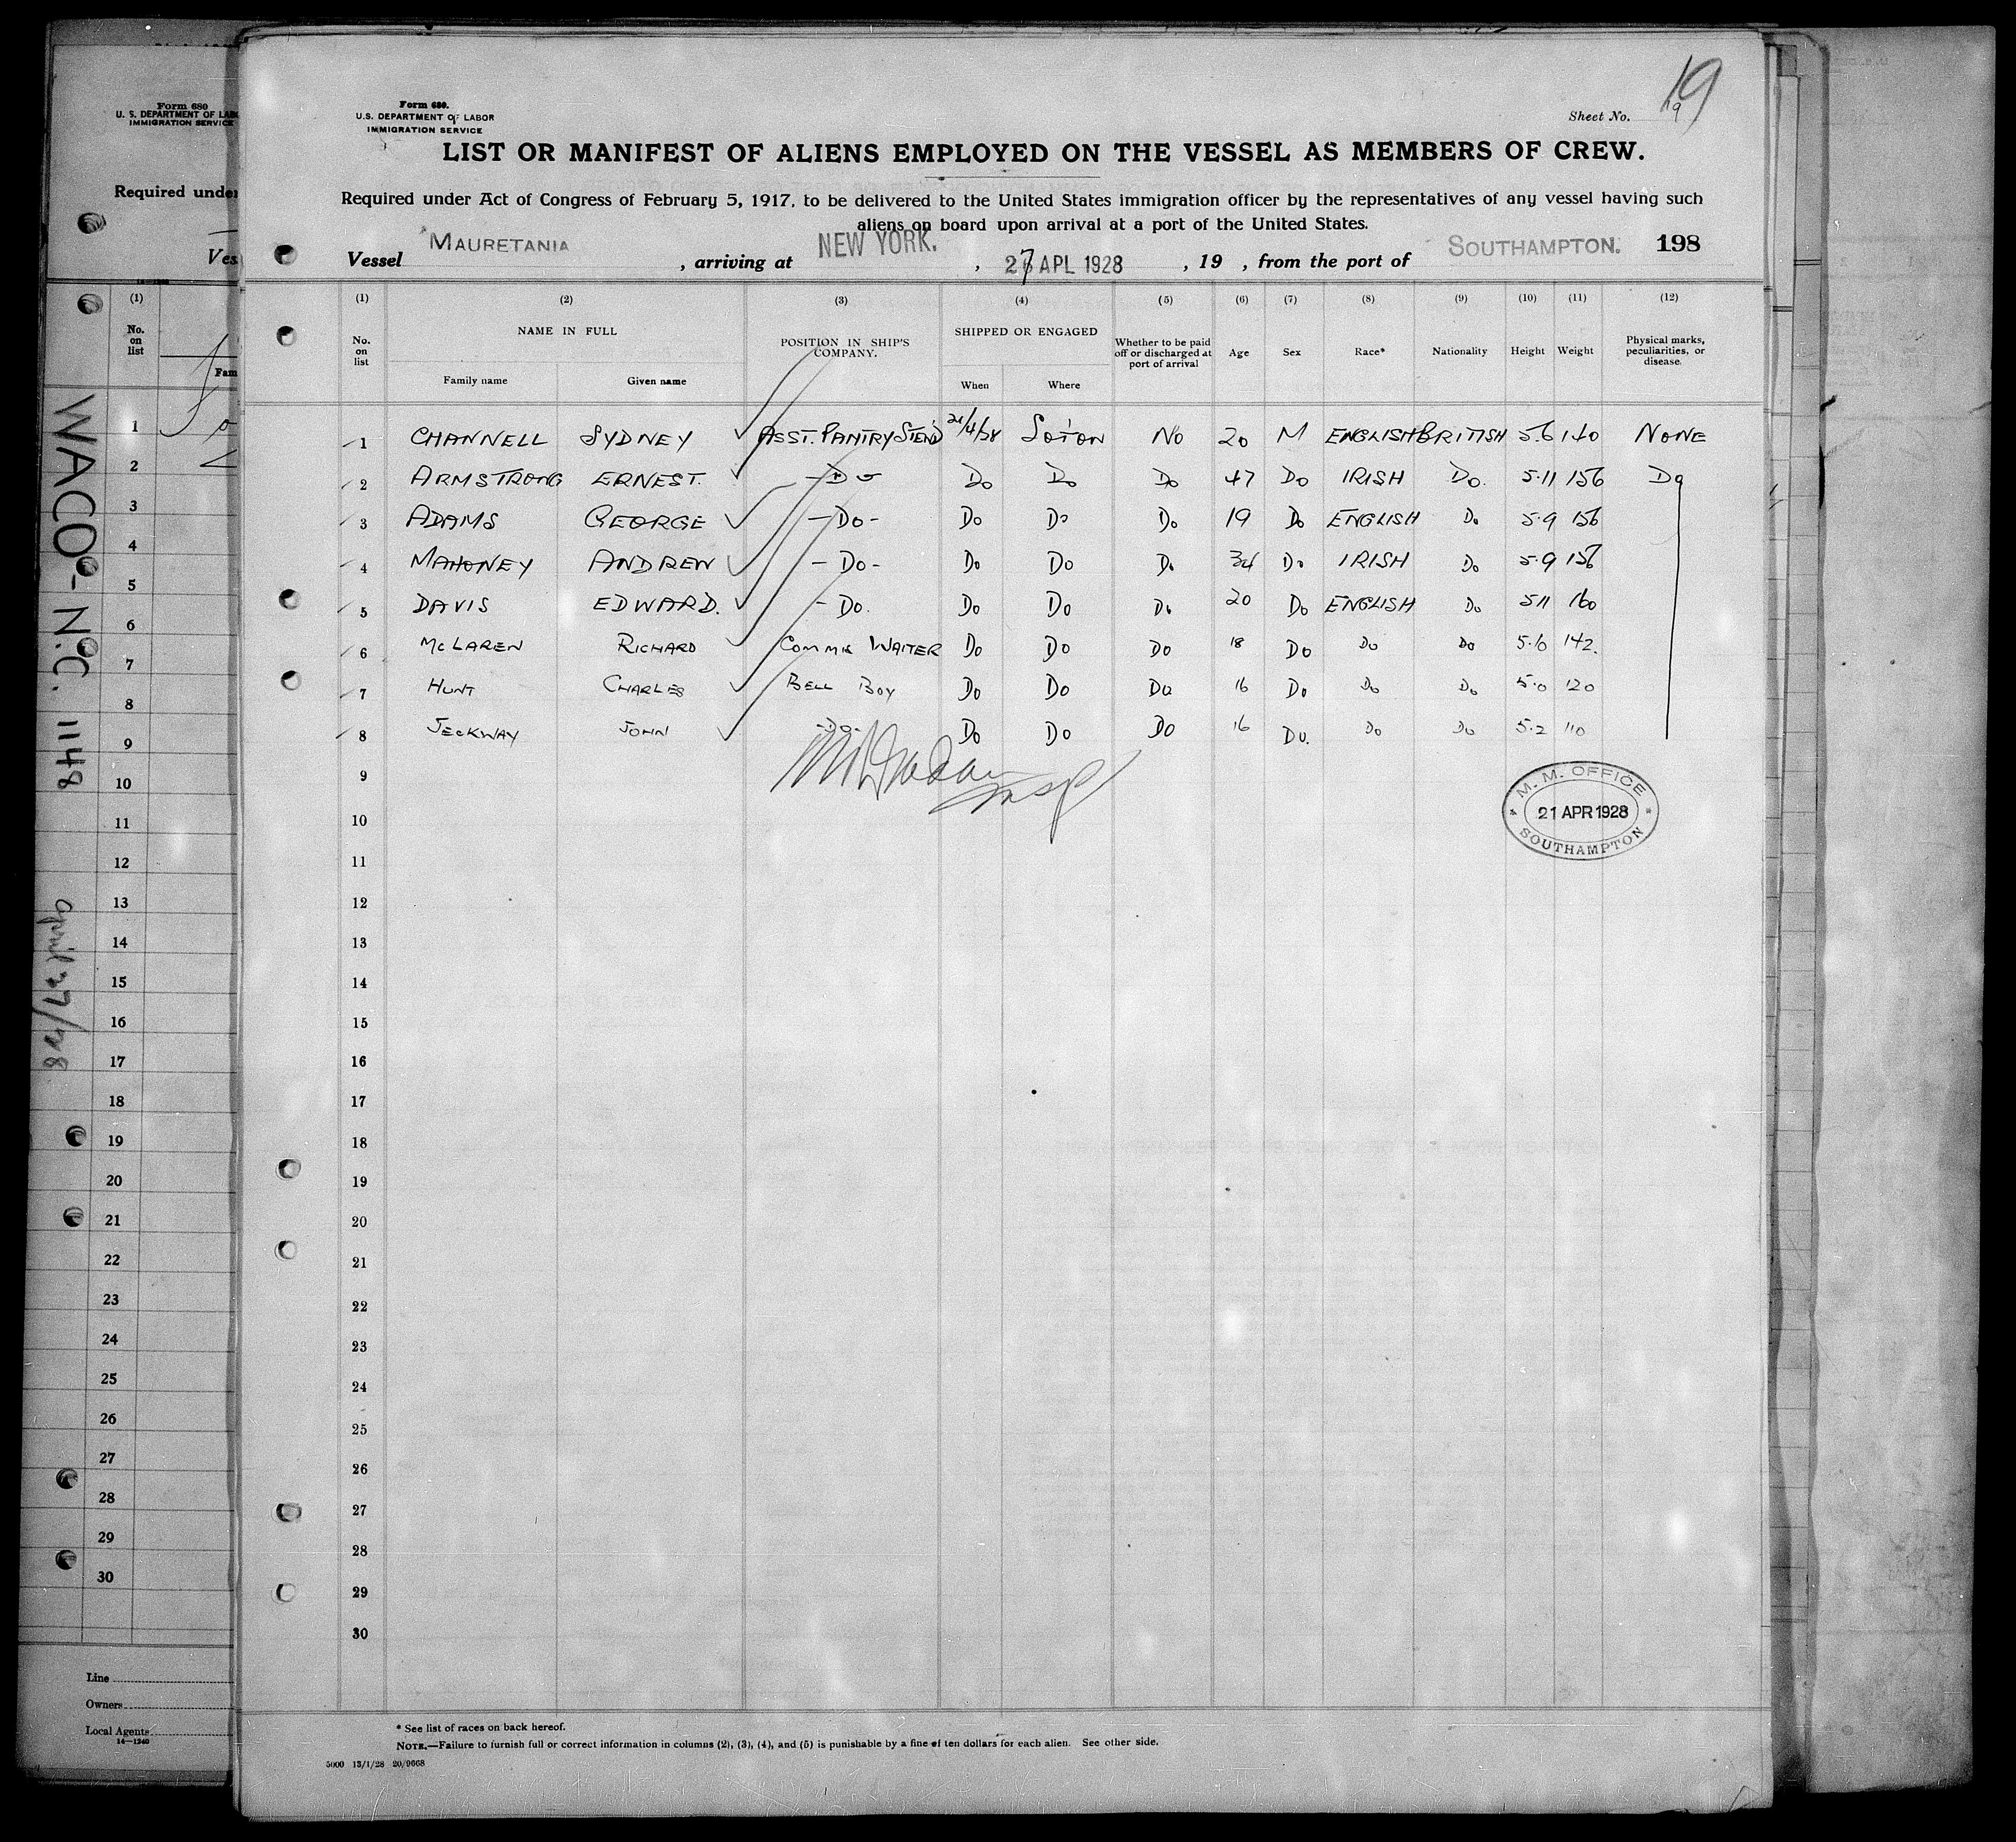 Form 680
U. S. DEPARTMENT OF LAB
IMMIGRATION SERVICE
Required unde
Ves
(1)
No.
on
list
Fam
1
2
3
4
5
6
7
8
9
10
11
12
13
14
15
16
17
18
19
20
21
22
23
24
25
26
27
28
29
30
Line
Owners
Local Agents
14—1240
WACO - N.C. 1148
April 27/28
19
Form 680.
U.S. DEPARTMENT OF LABOR
IMMIGRATION SERVICE
Sheet No. 19
LIST OR MANIFEST OF ALIENS EMPLOYED ON THE VESSEL AS MEMBERS OF CREW.
Required under Act of Congress of February 5, 1917, to be delivered to the United States immigration officer by the representatives of any vessel having such
aliens on board upon arrival at a port of the United States.
Vessel MAURETANIA, arriving at NEW YORK., 27 APL 1928, 19 , from the port of SOUTHAMPTON. 198
(1) (2) (3) (4) (5) (6) (7) (8) (9) (10) (11) (12)
No. on list NAME IN FULL POSITION IN SHIP'S COMPANY. SHIPPED OR ENGAGED Whether to be paid off or discharged at port of arrival Age Sex Race* Nationality Height Weight Physical marks, peculiarities, or disease.
Family name Given name When Where
1 CHANNELL SYDNEY ASST. PANTRY STEWD 21/4/28 So'ton No 20 M ENGLISH BRITISH 5.6 140 NONE
2 ARMSTRONG ERNEST. -Do- Do Do Do 47 Do IRISH Do. 5.11 156 Do
3 ADAMS GEORGE -Do- Do Do Do 19 Do ENGLISH Do 5.9 156
4 MAHONEY ANDREW -Do- Do Do Do 34 Do IRISH Do 5.9 156
5 DAVIS EDWARD. -Do. Do Do Do 20 Do ENGLISH Do 5.11 160
6 McLAREN RICHARD COMMIS WAITER Do Do Do 18 Do Do Do 5.6 142.
7 HUNT CHARLES BELL BOY Do Do Do 16 Do Do Do 5.0 120
8 JECKWAY JOHN -Do- Do Do Do 16 Do. Do Do 5.2 110
9
10
11
12
13
14
15
16
17
18
19
20
21
22
23
24
25
26
27
28
29
30
M. M. OFFICE
21 APR 1928
SOUTHAMPTON
* See list of races on back hereof.
NOTE.—Failure to furnish full or correct information in columns (2), (3), (4), and (5) is punishable by a fine of ten dollars for each alien. See other side.
5000 13/1/28 20/9668